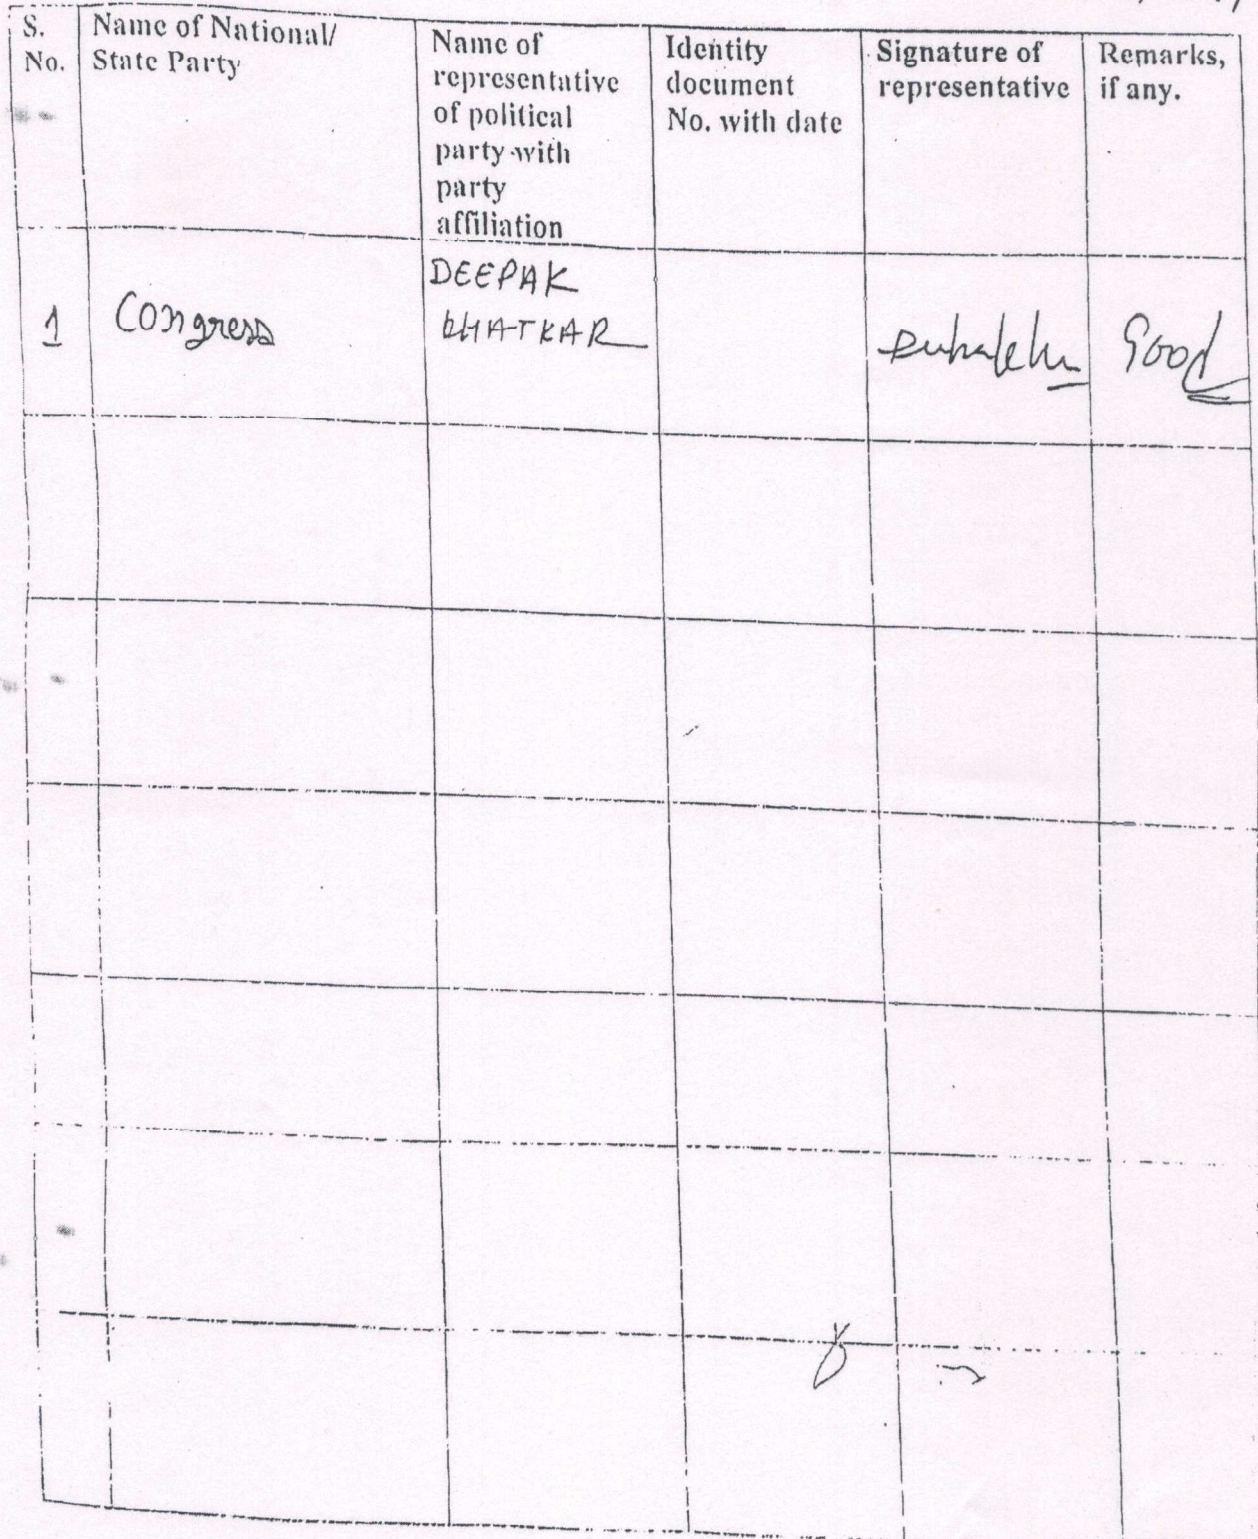 S. No.
Name of National/
State Party
Name of
representative
of political
party with
party
affiliation
Identity
document
No. with date
Signature of
representative
Remarks,
if any.
1
Congress
DEEPAK
BHATKAR
Good